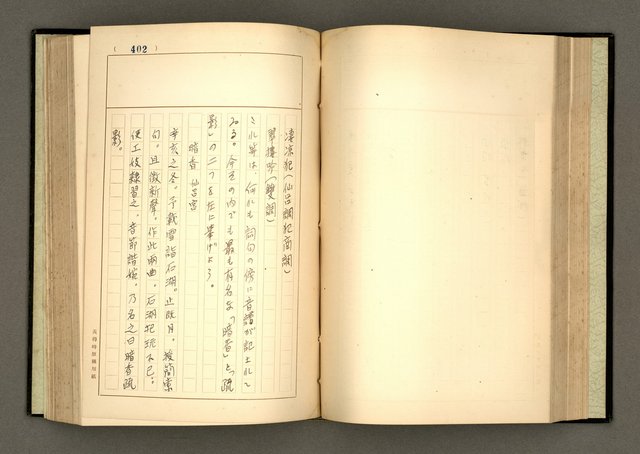 (402)
淒涼犯(仙呂調犯商調)
翠樓吟(雙調)
これ等は、何れも詞句の傍に音譜が記されて
ゐる。今その内でも最も有名な「暗香」と「疏
影」の二つを左に擧げよう。
暗香 仙呂宮
辛亥之冬。予載雪詣石湖。止既月。授簡索
句。且徵新聲。作此兩曲。石湖把玩不已。
使工伎隸習之。音節諧婉。乃名之曰暗香疏
影。